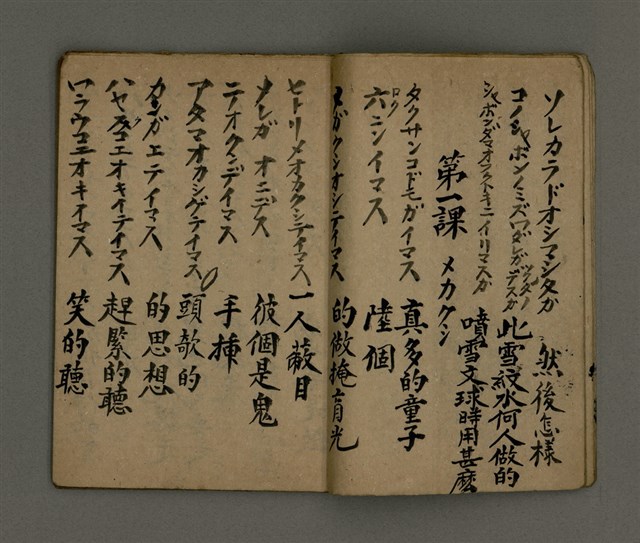 ソレカラドオシマシタカ 然後怎樣
コノシャボンノミズワダレガツクタノデスカ 此雪紋水何人做的
シャボンダマオフクトキニイリマスカ 噴雪文球時用甚麼
第一課 メカクシ
タクサンコドモガイマス 真多的童子
六ニンイマス 陸個
ロク
メガクシオシテイマス 的做掩盲光
ヒトリメオカクシテイマス 一人蔽目
ソレガオニデス 彼個是鬼
ニテオクンデイマス 手揷
アタマオカシゲテイマス 頭欹的
カンガエテイマス 的思想
ハヤクコエオキイテイマス 趕緊的聽
ワラウコエオキイマス 笑的聽